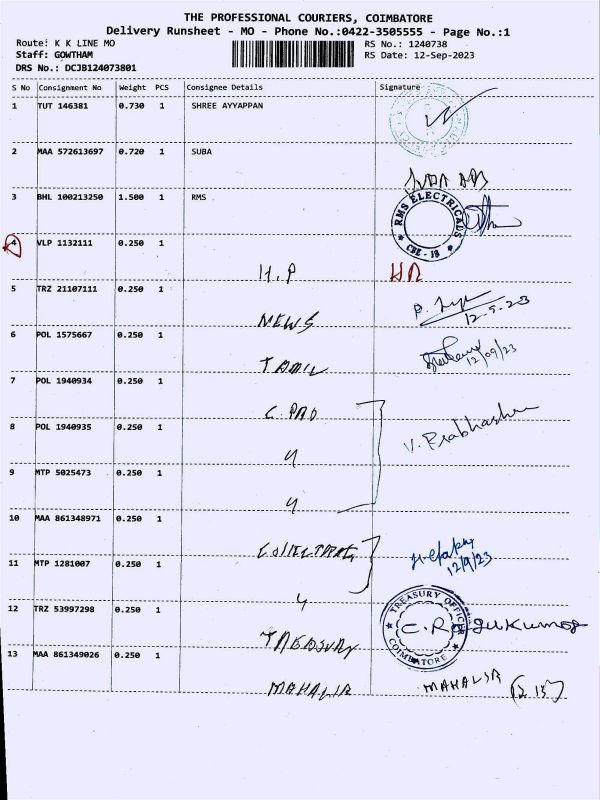 THE PROFESSIONAL COURIERS, COIMBATORE
Delivery Runsheet - MO - Phone No.:0422-3505555 - Page No.:1
Route: K K LINE MO
RS No.: 1240738
Staff: GOWTHAM
RS Date: 12-Sep-2023
DRS No.: DCJB124073801
S No Consignment No Weight PCS Consignee Details Signature
1 TUT 146381 0.730 1 SHREE AYYAPPAN
2 MAA 572613697 0.720 1 SUBA
3 BHL 100213250 1.500 1 RMS
RMS ELECTRICALS
CBE - 18
4 VLP 1132111 0.250 1
H.P
5 TRZ 21107111 0.250 1
NEWS
12-9-23
6 POL 1575667 0.250 1
TAMIL
12/09/23
7 POL 1940934 0.250 1
8 POL 1940935 0.250 1
V. Prabhashu
9 MTP 5025473 0.250 1
10 MAA 861348971 0.250 1
12/9/23
11 MTP 1281007 0.250 1
TREASURY OFFICE
12 TRZ 53997298 0.250 1
COIMBATORE
TREASURY
13 MAA 861349026 0.250 1
MAHALIR
MAHALIR